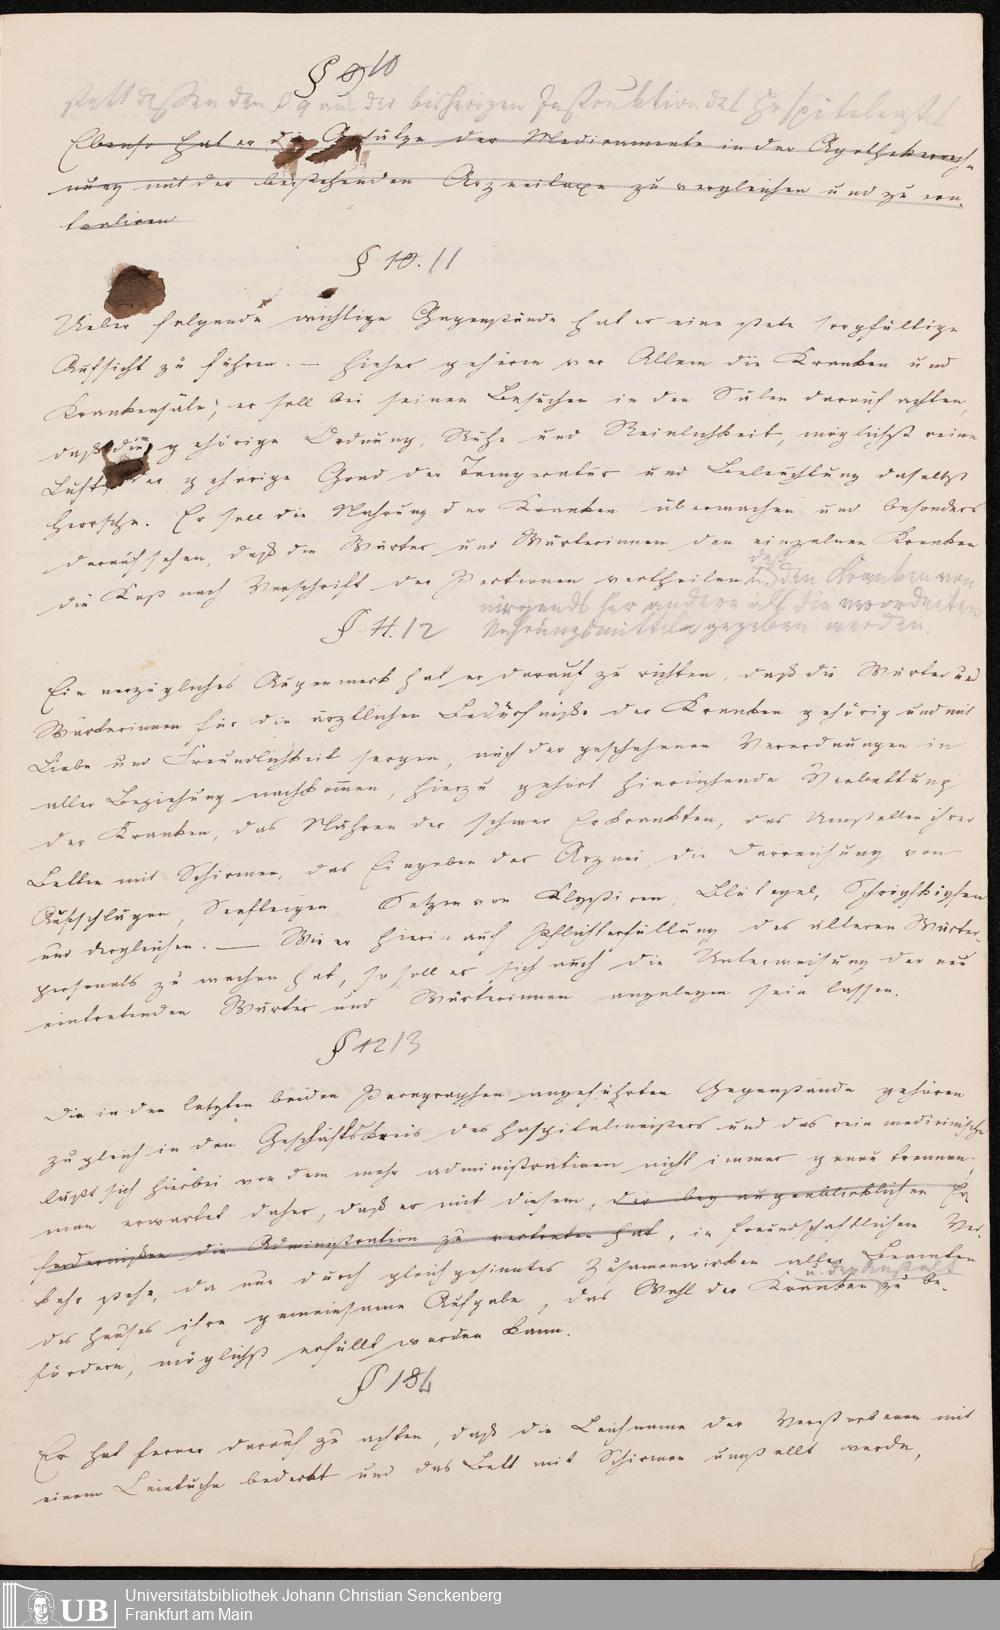 § 9 10
statt dessen den § 9 aus der bisherigen Instruktion des Hospitalarztes
Ebenso hat er die Ansätze der Medicamente in der Apothekerrech-
nung mit der bestehenden Arzneitaxe zu vergleichen und zu con-
troliren
§ 10. 11
Ueber folgende wichtige Gegenstände hat er eine stete sorgfältige
Aufsicht zu führen. — Hieher gehören vor Allem die Kranken und
Krankensäle; er soll bei seinen Besuchen in den Sälen darauf achten,
daß die gehörige Ordnung, Ruhe und Reinlichkeit, möglichst reine
Luft, der gehörige Grad der Temperatur und Beleuchtung daselbst
herrsche. Er soll die Nahrung der Kranken überwachen und besonders
darauf sehen, daß die Wärter und Wärterinnen den einzelnen Kranken
die Kost nach Vorschrift der Portionen vertheilen u. daß den Kranken von
nirgends her andere als die verordneten
§ 11. 12 Nahrungsmittel gegeben werden.
Ein vorzügliches Augenmerk hat er darauf zu richten, daß die Wärter und
Wärterinnen für die ärztlichen Bedürfniße der Kranken gehörig und mit
Liebe und Freundlichkeit sorgen, auch den geschehenen Verordnungen in
aller Beziehung nachkommen, hierzu gehört hinreichende Verbettung
der Kranken, das Nähren der schwer Erkrankten, das Umstellen ihrer
Betten mit Schirmen, das Eingeben der Arznei, die Darreichung von
Aufschlägen, Senfteigen, Setzen von Klystiren, Blutegel, Schröpfköpfen
und dergleichen. — Wie er hierin auf Pflichterfüllung des älteren Wärter-
personals zu wachen hat, so soll er sich auch die Unterweisung der neu
eintretenden Wärter und Wärterinnen angelegen sein lassen.
§ 12 13
Die in den letzten beiden Paragraphen angeführten Gegenstände gehören
zugleich in den Geschäftskreis des Hospitalmeisters und das rein medicinische
läßt sich hierbei von dem mehr administrativen nicht immer genau trennen;
man erwartet daher, daß er mit diesem, der bey augenblicklichen Er-
fordernißen die Administration zu vertreten hat, in freundschaftlichem Ver-
kehr stehe, da nur durch gleichgesinntes Zusammenwirken aller Beamten
des Hauses ihre gemeinsame Aufgabe, das Wohl der Kranken u. der Anstalt zu be-
fördern, möglichst erfüllt werden kann.
§ 13 4
Er hat ferner darauf zu achten, daß die Leichname der Verstorbenen mit
einem Leintuche bedeckt und das Bett mit Schirmen umstellt werde,
Universitätsbibliothek Johann Christian Senckenberg
Frankfurt am Main
UB